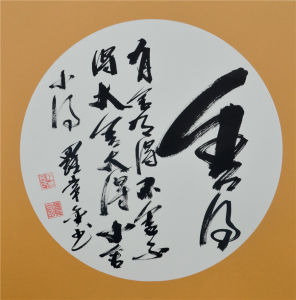 舍得
有舍有得不舍不
得大舍大得小舍
小得